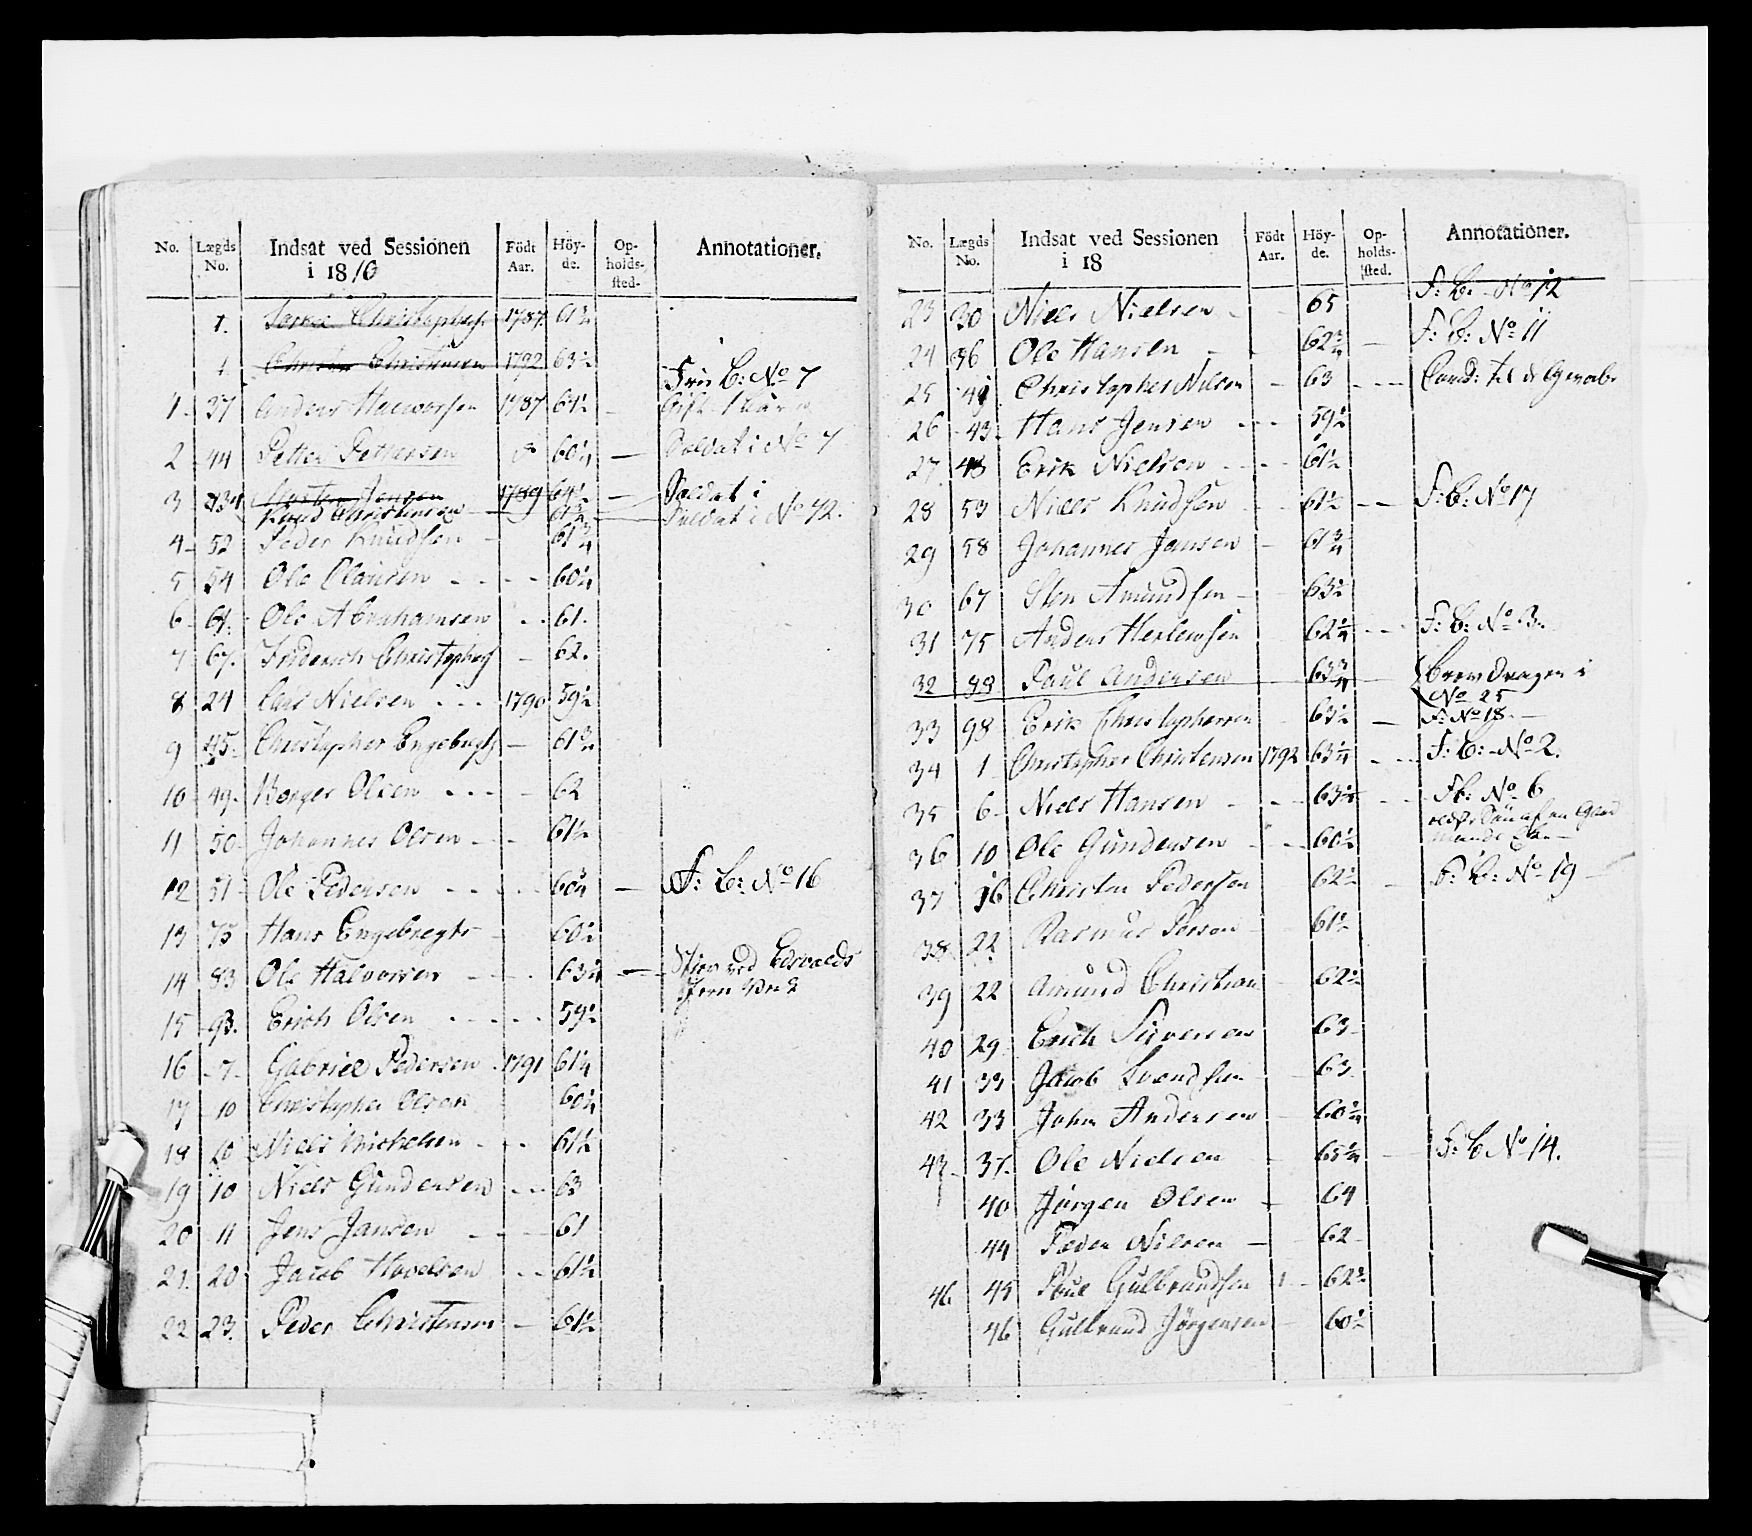 No. Lægds No. Indsat ved Sessionen i 1810 Födt Aar. Höy- de. Op- holds- sted. Annotationer.
1. Christophers. 1787. 61½
1. Christensen 1792 63½
Fri C: No 7
1 - 37 Anders Halvorsen 1787 61½ -
2 - 44 Petter Pettersen 60¼ — Soldat i No 7
3 Jensen 1789 64½ — Soldat i
Knud Christensen — 61½ — Soldat i No 42.
4 - 52 Peder Knudsen - 61¾
5 54 Ole Olaussen - - - - 60½
6 - 61. Ole Abrahamsen - - 61.
7 67. Friderich Christophers - 62.
8 24 Lars Nielsen - - - 1790 59½
9 45. Christopher Engebregts — 61¾
10 - 49. Borger Olsen - - - - 62
11 50. Johannes Olsen - - - 61½
12 51 - Ole Pedersen - - - - 60¼ — F: C: No 16
13 75 Hans Engebregts - 60½
14 83 Ole Halvorsen - - - - 63½ — Edsvolds
15 93. Erich Olsen - - - - - 59½
16 - 7 - Gabriel Pedersen - 1791 61¼
17 - 10 Christopher Olsen 60½
18 10 Niels Michelsen - - - 61½
19 10 Niels Gundersen - - - 63
20 11 Jens Jansen - - - - 61
21. 20 Jacob Hovelsen - - - 61½
22 23. Peder Christensen — 61½
No. Lægds No. Indsat ved Sessionen i 18 Födt Aar. Höy- de. Op- holds- sted. Annotationer.
23 30 Niels Nielsen - - 65 F: C: No 12
24 36 Ole Hansen - - 62¾ — F: C: No 11
25 41 Christopher Nilsen - 63 - - -
26 43. Hans Jensen - - - 59½
27. 48 Erik Nielsen - - - - 61½
28 53 Niels Knudsen - - 61½ - - F: C: No 17
29 58 Johannes Jansen - 61¾
30 67 Sten Amundsen - - 63½
31 75 Anders Herlewsen 62¼ - - - F: C: No 3.
32 88 Paul Andersen 63¾ Brevdrager i No 25
33 98 Erik Christophersen 63½ — F: No 18. —
34 1 Christopher Christensen 1792 63¼ - - - F: C: No 2.
35 6 - Niels Hansen - - - 63½ - - FC: No 6
36 10 Ole Gundersen - - - 60½
37 16 Christen Pedersen 62½ - F: C: No 19 —
38. 22 Rasmus Persen - 61½
39 22 Amund Christian 62½
40 29 Erich Siversen 63 -
41 33 Jacob Svendsen 63
42 33 John Andersen — 60½
43 - 37. Ole Nielsen — 65¾ - F: C No 14.
40 Jørgen Olsen — 64
44 Peder Nilsen — - 62 -
46 45 Poul Gulbrandsen 62½
46 Gulbrand Jörgensen - 60½